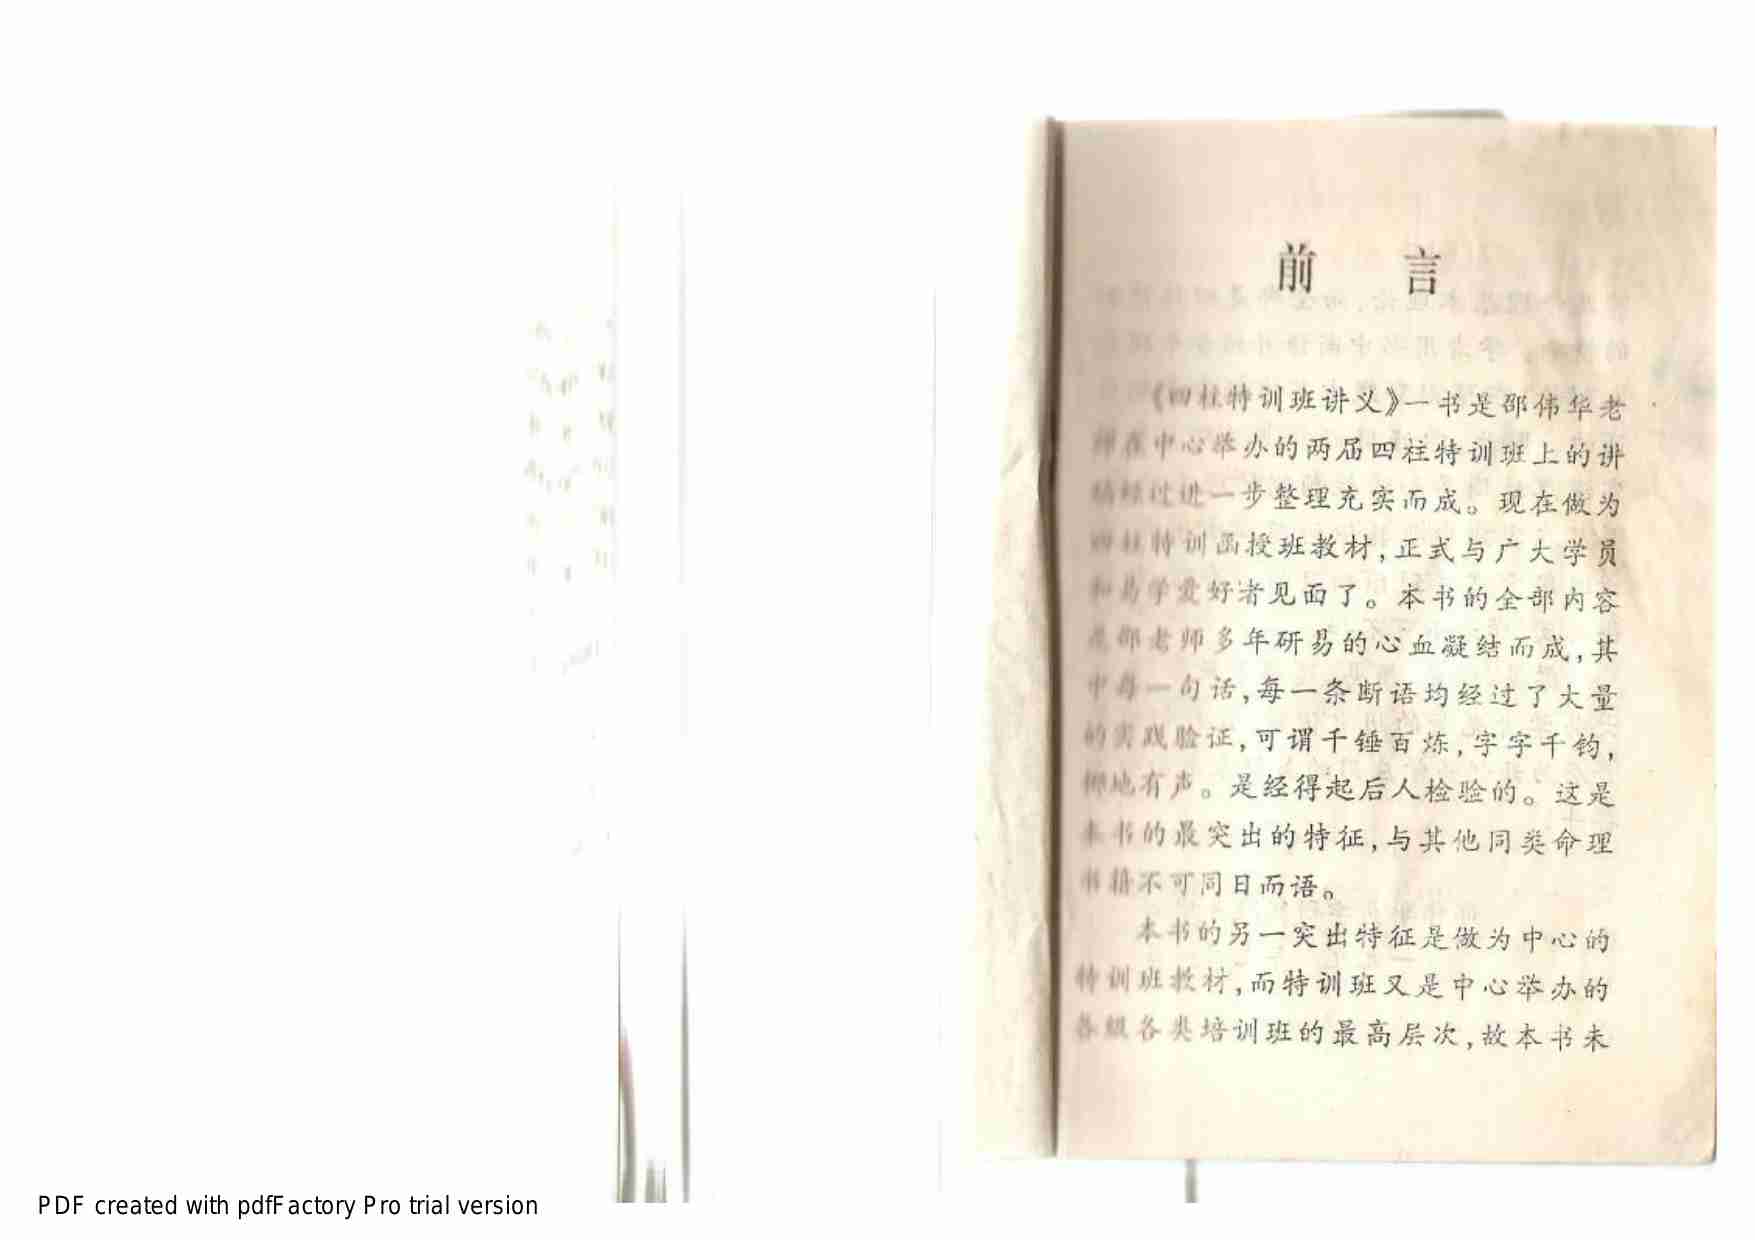 前 言
《四柱特训班讲义》一书是邵伟华老
师在中心举办的两届四柱特训班上的讲
稿经过进一步整理充实而成。现在做为
四柱特训函授班教材,正式与广大学员
和易学爱好者见面了。本书的全部内容
是邵老师多年研易的心血凝结而成,其
中每一句话,每一条断语均经过了大量
的实践验证,可谓千锤百炼,字字千钧,
掷地有声。是经得起后人检验的。这是
本书的最突出的特征,与其他同类命理
书籍不可同日而语。
本书的另一突出特征是做为中心的
特训班教材,而特训班又是中心举办的
各级各类培训班的最高层次,故本书未
PDF created with pdfFactory Pro trial version